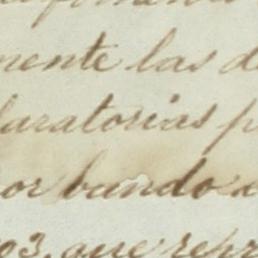 mente las d
laratorias p
or bando
03, que repr